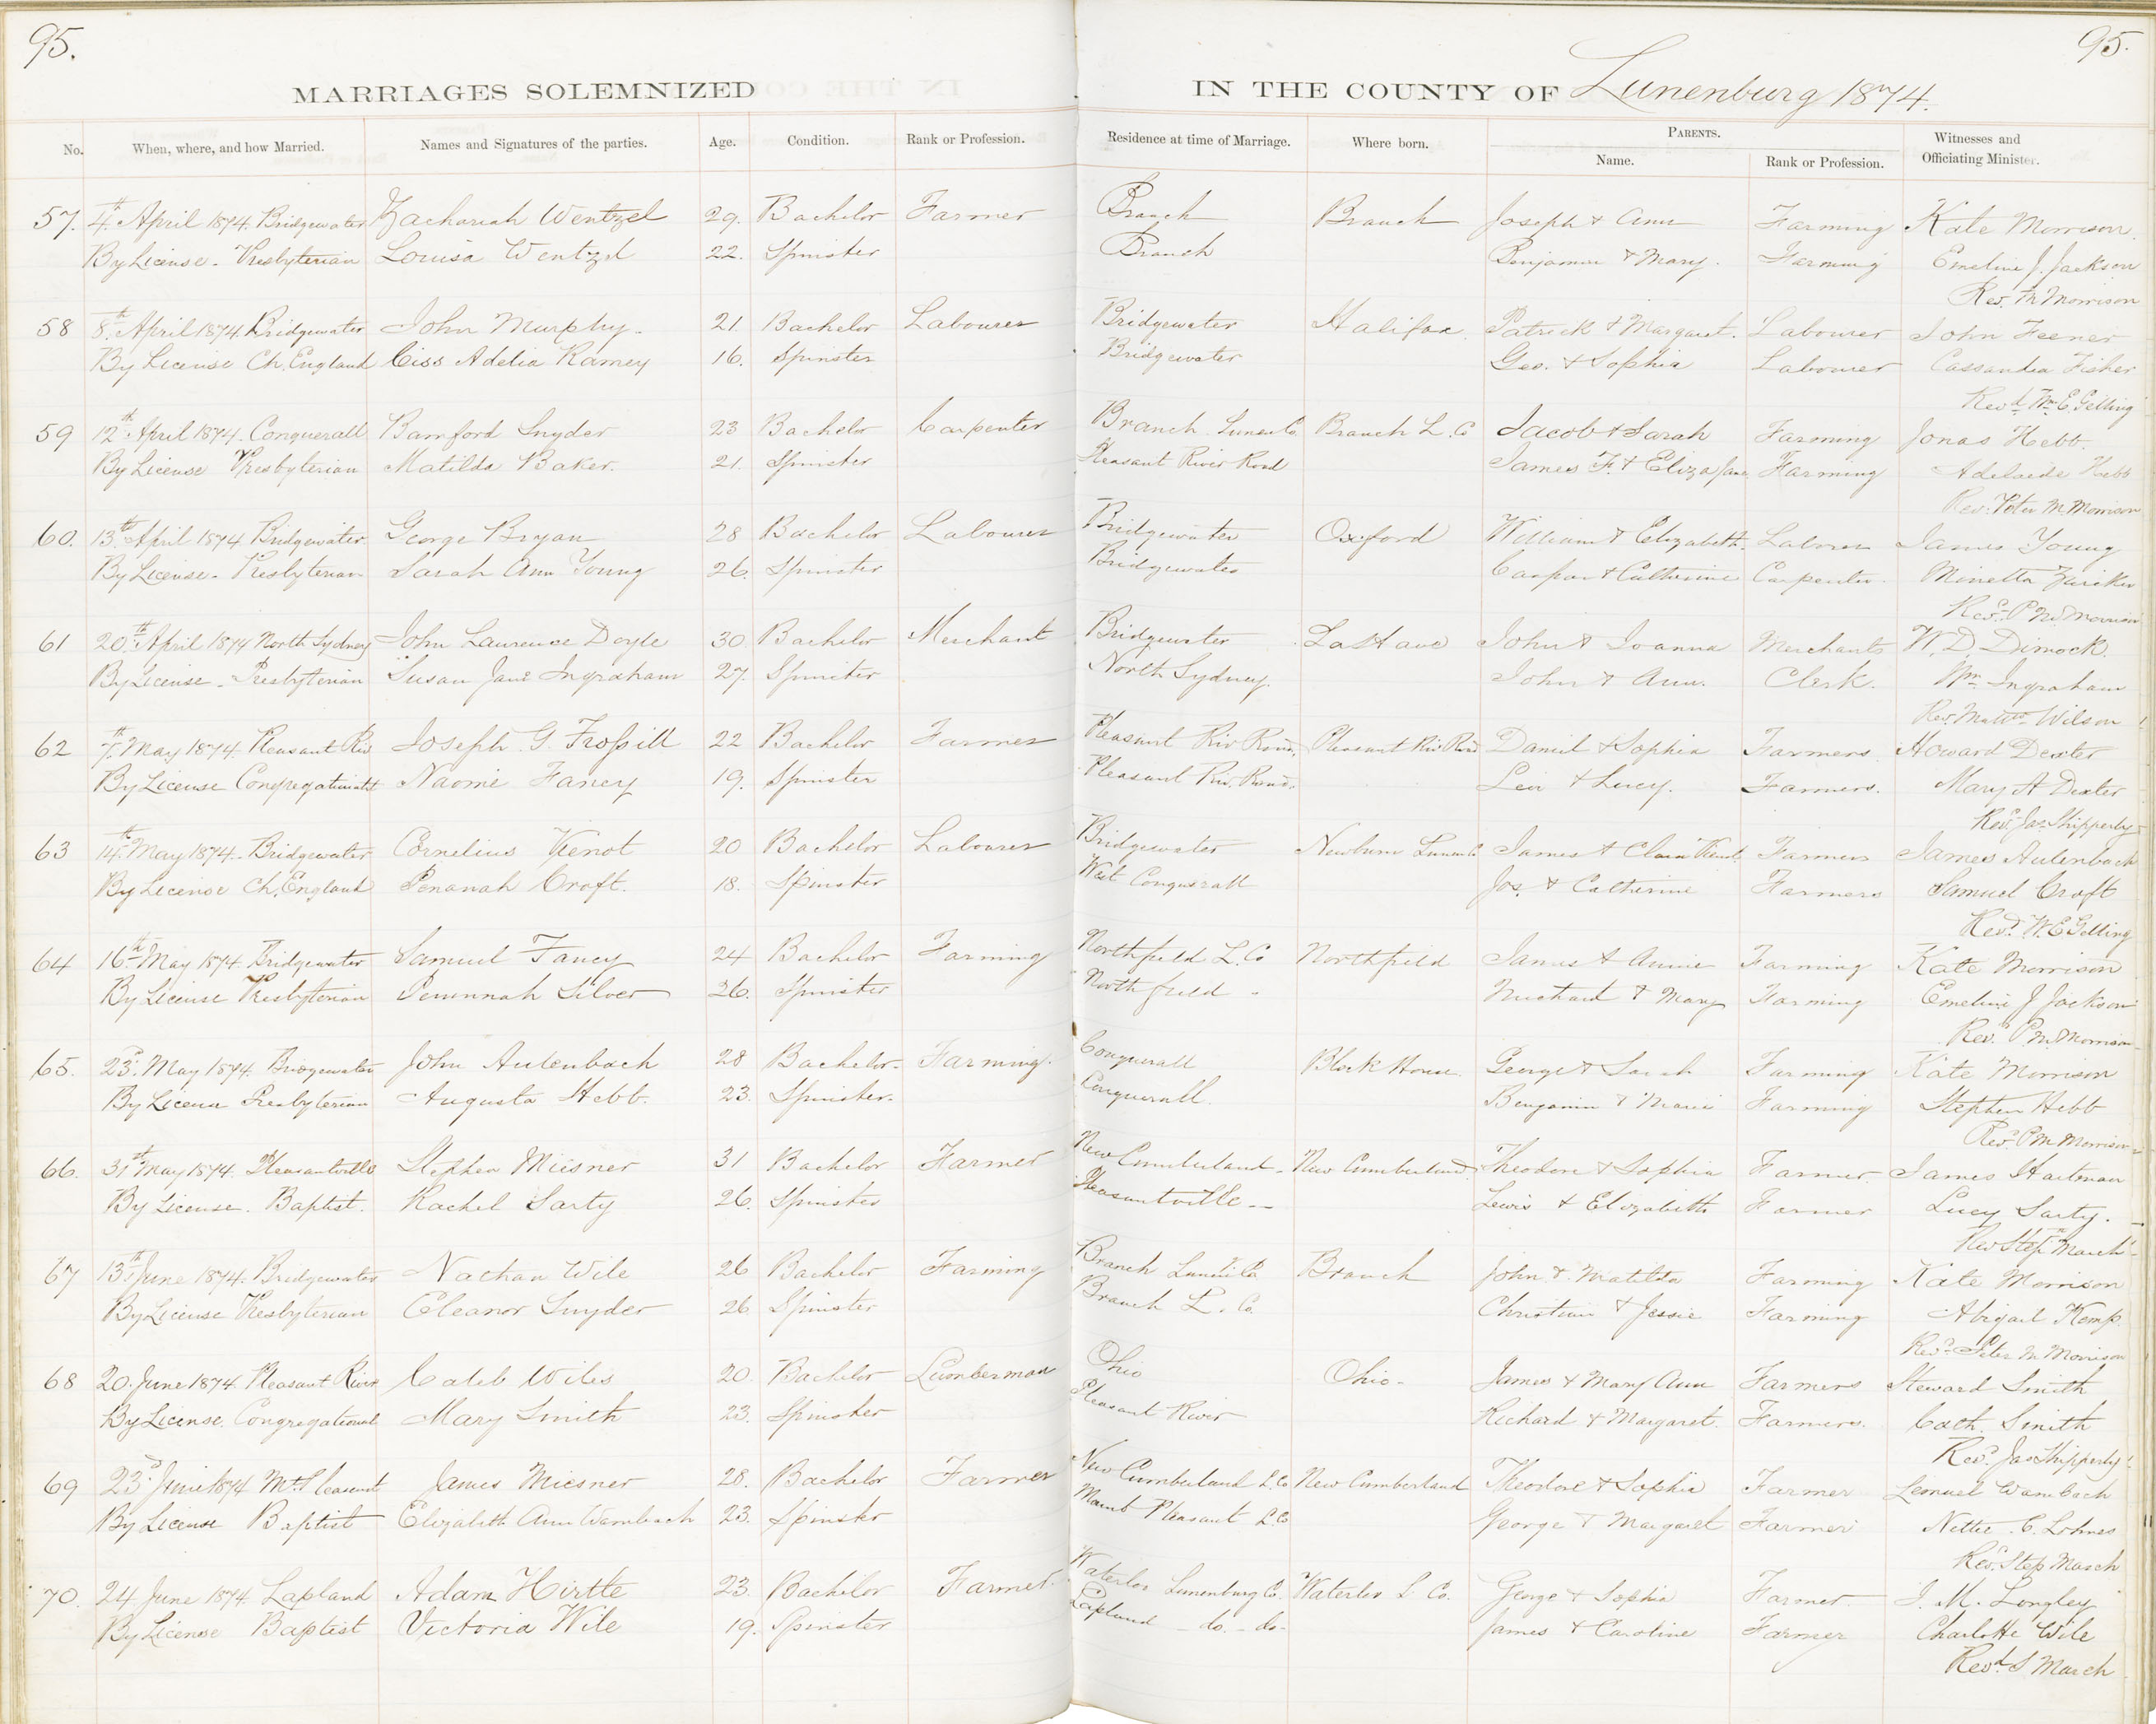 95.
95.
MARRIAGES SOLEMNIZED IN THE COUNTY OF Lunenburg 1874.
No. When, where, and how Married. Names and Signatures of the parties. Age. Condition. Rank or Profession. Residence at time of Marriage. Where born. PARENTS. Witnesses and
Name. Rank or Profession. Officiating Minister.
57. 4th April 1874 Bridgewater Zachariah Wentzel 29. Bachelor Farmer Branch Branch Joseph & Ann Farming Kate Morrison
By License - Presbyterian Louisa Wentzel 22. Spinster Branch Benjamin & Mary. Farming Emeline J. Jackson
Rev. M Morrison
58 8th April 1874 Bridgewater John Murphy. 21. Bachelor Labourer Bridgewater Halifax Patrick & Margaret. Labourer John Feener
By License Ch. England Ciss Adelia Ramey 16. Spinster Bridgewater Geo. & Sophia Labourer Cassandia Fisher
Revd. Wm. E. Gelling
59 12th April 1874. Conquerall Bamford Snyder 23 Bachelor Carpenter Branch Lunen Co. Branch L. Co Jacob & Sarah Farming Jonas Hebb
By License Presbyterian Matilda Baker. 21. Spinster Pleasant River Road James F. & Eliza Jane Farming Adelaide Hebb
Rev. Peter M. Morrison
60. 13th April 1874 Bridgewater George Bryan 28 Bachelor Labourer Bridgewater Oxford William & Elizabeth. Laborer James Young
By License - Presbyterian Sarah Ann Young 26. Spinster Bridgewater Caspar & Catherine Carpenter. Minetta Zwicker
Revd. P M. Morrison
61 20th April 1874 North Sydney John Lawrence Doyle 30 Bachelor Merchant Bridgewater LaHave John & Joanna Merchants W. D. Dimock.
By License - Presbyterian Susan Jane Ingraham 27. Spinster North Sydney. John & Ann. Clerk. Wm. Ingraham
Rev. Mattw. Wilson
62 7th May 1874. Pleasant Riv Joseph G. Frossill 22 Bachelor Farmer Pleasant Riv Road. Pleasant Riv Road Daniel & Sophia Farmers Howard Dexter
By License Congregationalist Naomi Fancy 19. Spinster Pleasant Riv. Road. Levi & Lucy. Farmers. Mary A Dexter
Revd. Jas. Shipperly
63 14th May 1874. Bridgewater Cornelius Vienot 20 Bachelor Labourer Bridgewater Newburn Lunen Co James & Clara Vienot Farmers James Autenbach
By License Ch. England Penanah Croft. 18. Spinster West Conquerall Jos. & Catherine Farmers Samuel Croft
Revd. W. E Gelling
64 16th May 1874 Bridgewater Samuel Fancy 24 Bachelor Farming Northfield L. Co Northfield James & Annie Farming Kate Morrison
By License Presbyterian Penninnah Silver 26. Spinster Northfield - & Mary Farming Emeline J Jackson
Revd. P M. Morrison
65. 23d. May 1874. Bridgewater John Autenbach 28 Bachelor. Farming. Conquerall Block House. George & Sarah Farming Kate Morrison
By License Presbyterian Augusta Hebb. 23. Spinster. Conquerall. Benjamin & Maria Farming Stephen Hebb
Revd. P M Morrison
66. 31st May 1874. Pleasantville Stephen Miesner 31 Bachelor Farmer New Cumberland - New Cumberland Theodore & Sophia Farmer. James Hartman
By License. Baptist. Rachel Sarty 26. Spinster Pleasantville -- Lewis & Elizabeth Farmer Lucy Sarty.
Rev Step March
67 13th June 1874. Bridgewater Nathan Wile 26 Bachelor Farming Branch Lunen Co Branch John & Matilda Farming Kate Morrison
By License Presbyterian Eleanor Snyder 26 Spinster Branch L. Co. Christian & Jessie Farming Abigail Kemp.
Revd. Peter M Morrison
68 20. June 1874 Pleasant River Caleb Wiles 20. Bachelor Lumberman Ohio Ohio - James & Mary Ann Farmers Steward Smith
By License. Congregational Mary Smith 23. Spinster Pleasant River Richard & Margaret. Farmers. Cath. Smith
Revd. Jas Shipperly
69 23d. June 1874 Mt. Pleasant James Miesner 28. Bachelor Farmer New Cumberland L. Co New Cumberland Theodore & Sophia Farmer Lemuel Wambach
By License Baptist Elizabeth Ann Wambach 23. Spinster Mount Pleasant L. Co George & Margaret Farmer Nettie C. Lohnes
Revd. Step March
70. 24 June 1874 Lapland Adam Hirtle 23. Bachelor Farmer. Waterloo Lunenburg Co. Waterloo L Co. George & Sophia Farmer J. M. Longley
By License Baptist Victoria Wile 19. Spinster Lapland - do. - do - James & Caroline Farmer Charlotte Wile
Revd. S March